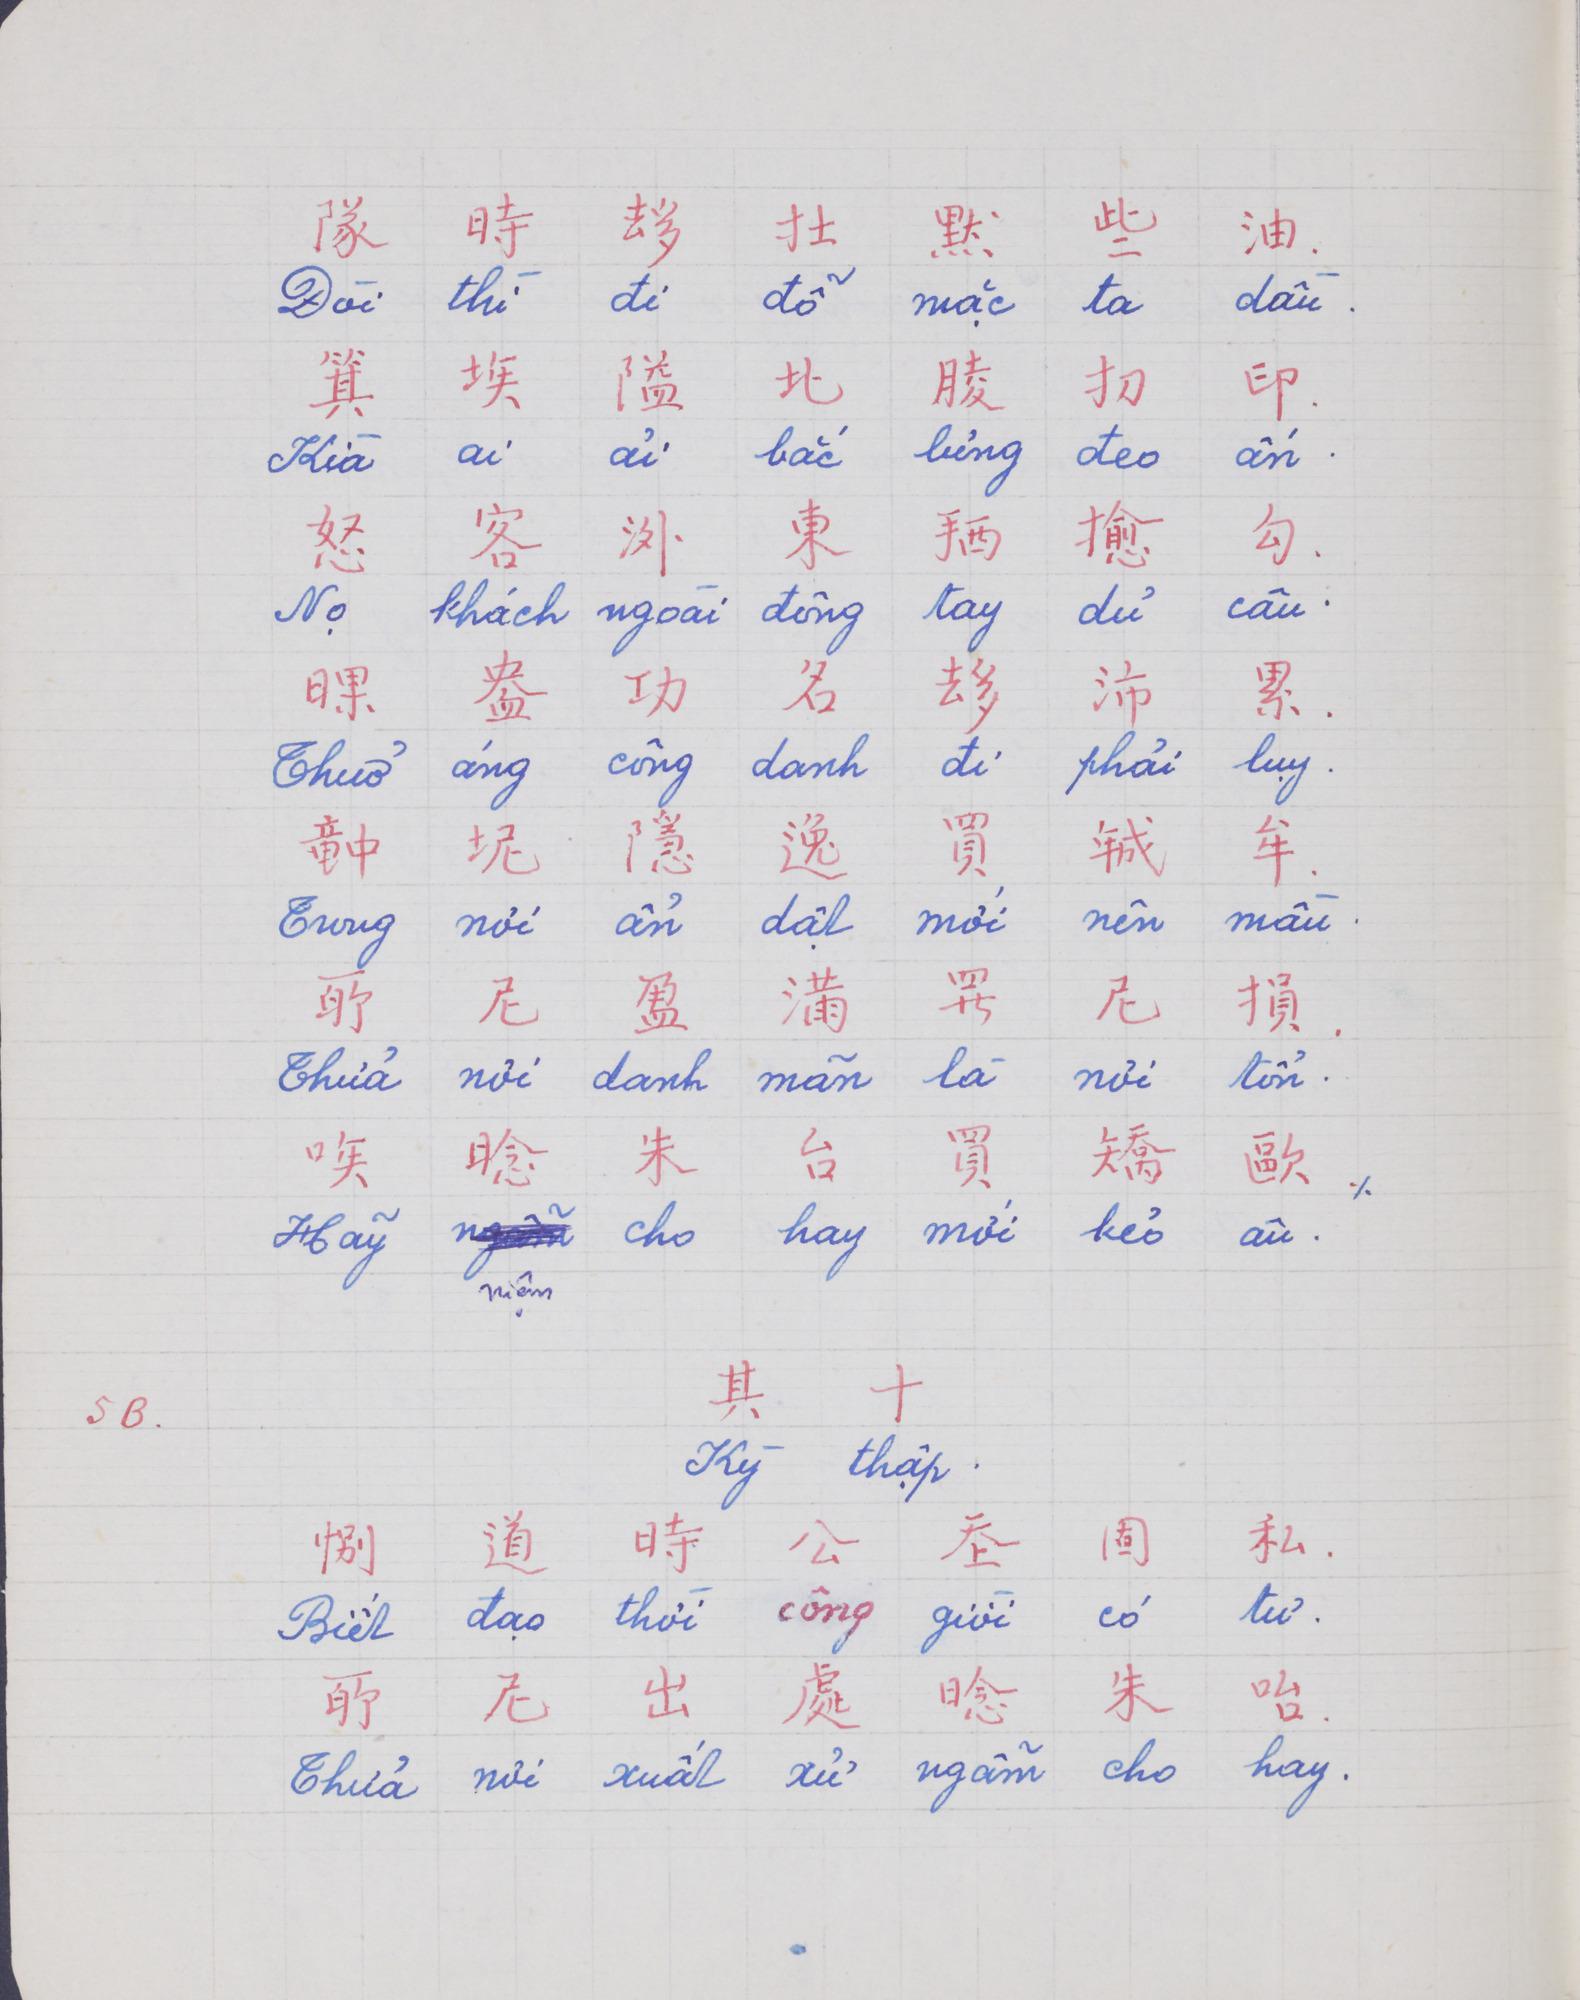 隊 時 𠫾 扗 默 些 油.
Đòi thì đi đỗ mặc ta dầu.
箕 埃 隘 北 䏾 扨 印.
Kìa ai ải bắc bưng đeo ấn.
怒 客 外 東 拪 㩘 勾.
Nọ khách ngoài đông tay dử câu.
𣇞 盎 功 名 𠫾 沛 累.
Thuở áng công danh đi phải lụy.
𥪝 坭 隱 逸 買 𢧚 牟.
Trong nơi ẩn dật mới nên mầu.
𠩕 尼 盈 滿 𱺵 尼 損.
Thửa nơi danh mãn là nơi tổn.
唉 唸 朱 台 買 矯 歐 ./.
Hãy niệm cho hay mới kẻo âu.
5B.
其 十
Kỳ thập.
𢘾 道 時 公 𡗶 固 私.
Biết đạo thời công giời có tư.
𠩕 尼 出 處 唸 朱 咍.
Thửa nơi xuất xử ngẫm cho hay.